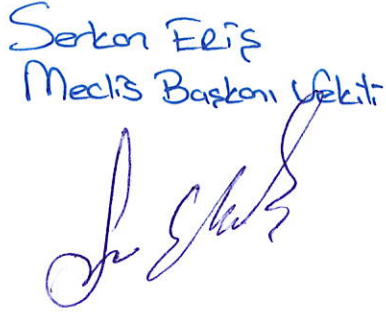 Serkan ERİŞ
Meclis Başkanı Vekili